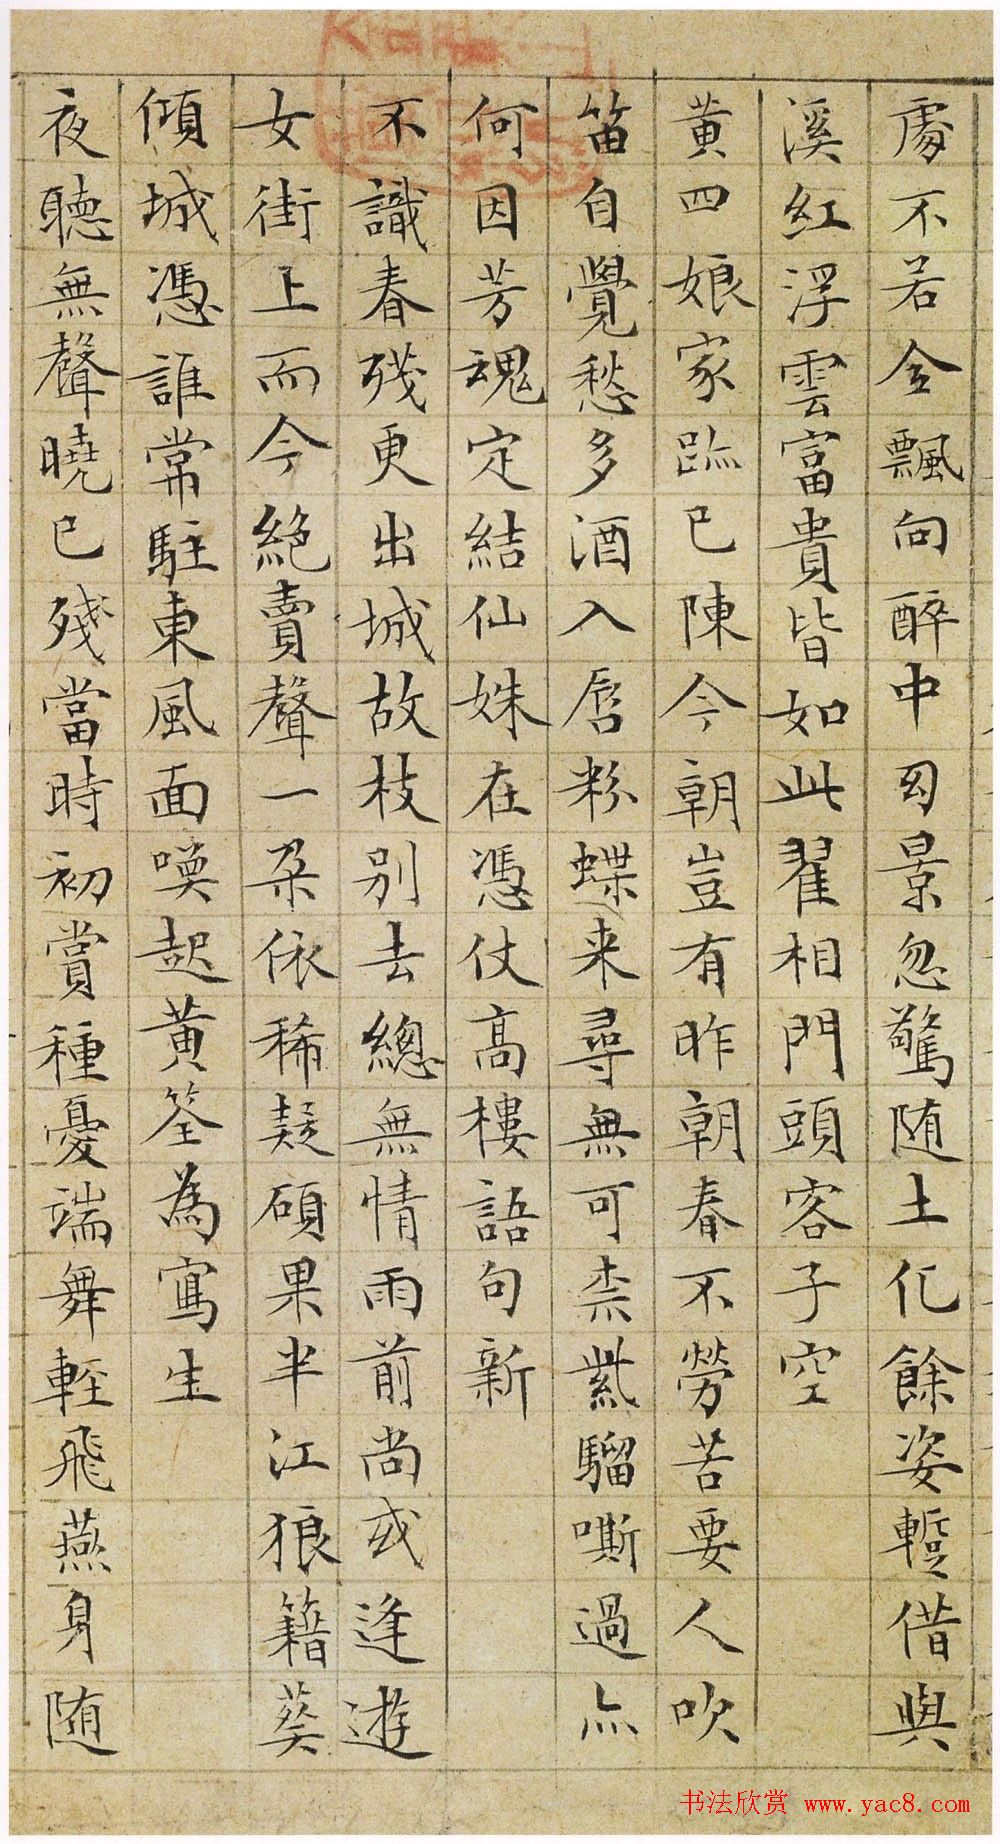 處不若金飄向醉中因景忽驚随土化餘姿蹔借與
溪紅浮雲富貴皆如此翟相門頭客子空
黄四娘家跡已陳今朝豈有昨朝春不勞苦要人吹
笛自覺愁多酒入唇粉蝶来尋無可柰紫騮嘶過亦
何因芳魂定結仙姝在憑仗高樓語句新
不識春残更出城故枝别去總無情雨前尚或逢遊
女街上而今絶賣聲一朶依稀疑碩果半江狼籍葵
傾城憑誰常駐東風面喚起黄筌為寫生
夜聽無聲曉已残當時初賞種憂端舞輕飛燕身随
书法欣赏 www.yac8.com